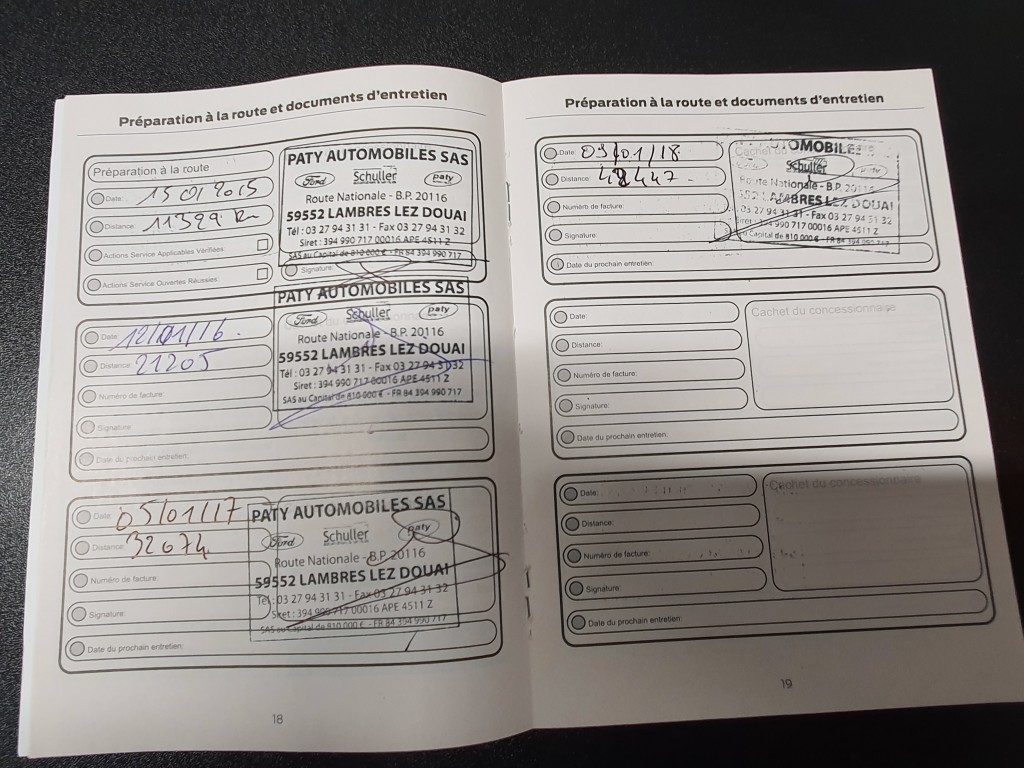 Préparation à la route et documents d'entretien
Préparation à la route
Date: 15 01 2015
Distance: 11329 Km
Actions Service Applicables Vérifiées
Actions Service Ouvertes Réussies
PATY AUTOMOBILES SAS
Ford Schuller paty
Route Nationale - B.P. 20116
59552 LAMBRES LEZ DOUAI
Tél : 03 27 94 31 31 - Fax 03 27 94 31 32
Siret : 394 990 717 00016 APE 4511 Z
SAS au Capital de 810 000 € - FR 84 394 990 717
Signature:
Date: 12/01/16.
Distance: 21205
Numéro de facture:
Signature:
Date du prochain entretien:
PATY AUTOMOBILES SAS
Ford Schuller paty
Route Nationale - B.P. 20116
59552 LAMBRES LEZ DOUAI
Tél : 03 27 94 31 31 - Fax 03 27 94 31 32
Siret : 394 990 717 00016 APE 4511 Z
SAS au Capital de 810 000 € - FR 84 394 990 717
Date: 05/01/17
Distance: 32674
Numéro de facture:
Signature:
Date du prochain entretien:
PATY AUTOMOBILES SAS
Ford Schuller paty
Route Nationale - B.P. 20116
59552 LAMBRES LEZ DOUAI
Tél : 03 27 94 31 31 - Fax 03 27 94 31 32
Siret : 394 990 717 00016 APE 4511 Z
SAS au Capital de 810 000 € - FR 84 394 990 717
18
Préparation à la route et documents d'entretien
Date: 03/01/18
Distance: 42447
Numéro de facture:
Signature:
Date du prochain entretien:
AUTOMOBILES
Schuller paty
Route Nationale - B.P. 20116
LAMBRES LEZ DOUAI
03 27 94 31 31 - Fax 03 27 94 31 32
Siret : 394 990 717 00016 APE 4511 Z
Capital de 810 000 € - FR 84 394 990 717
Date:
Distance:
Numéro de facture:
Signature:
Date du prochain entretien:
Cachet du concessionnaire
Date:
Distance:
Numéro de facture:
Signature:
Date du prochain entretien:
Cachet du concessionnaire
19